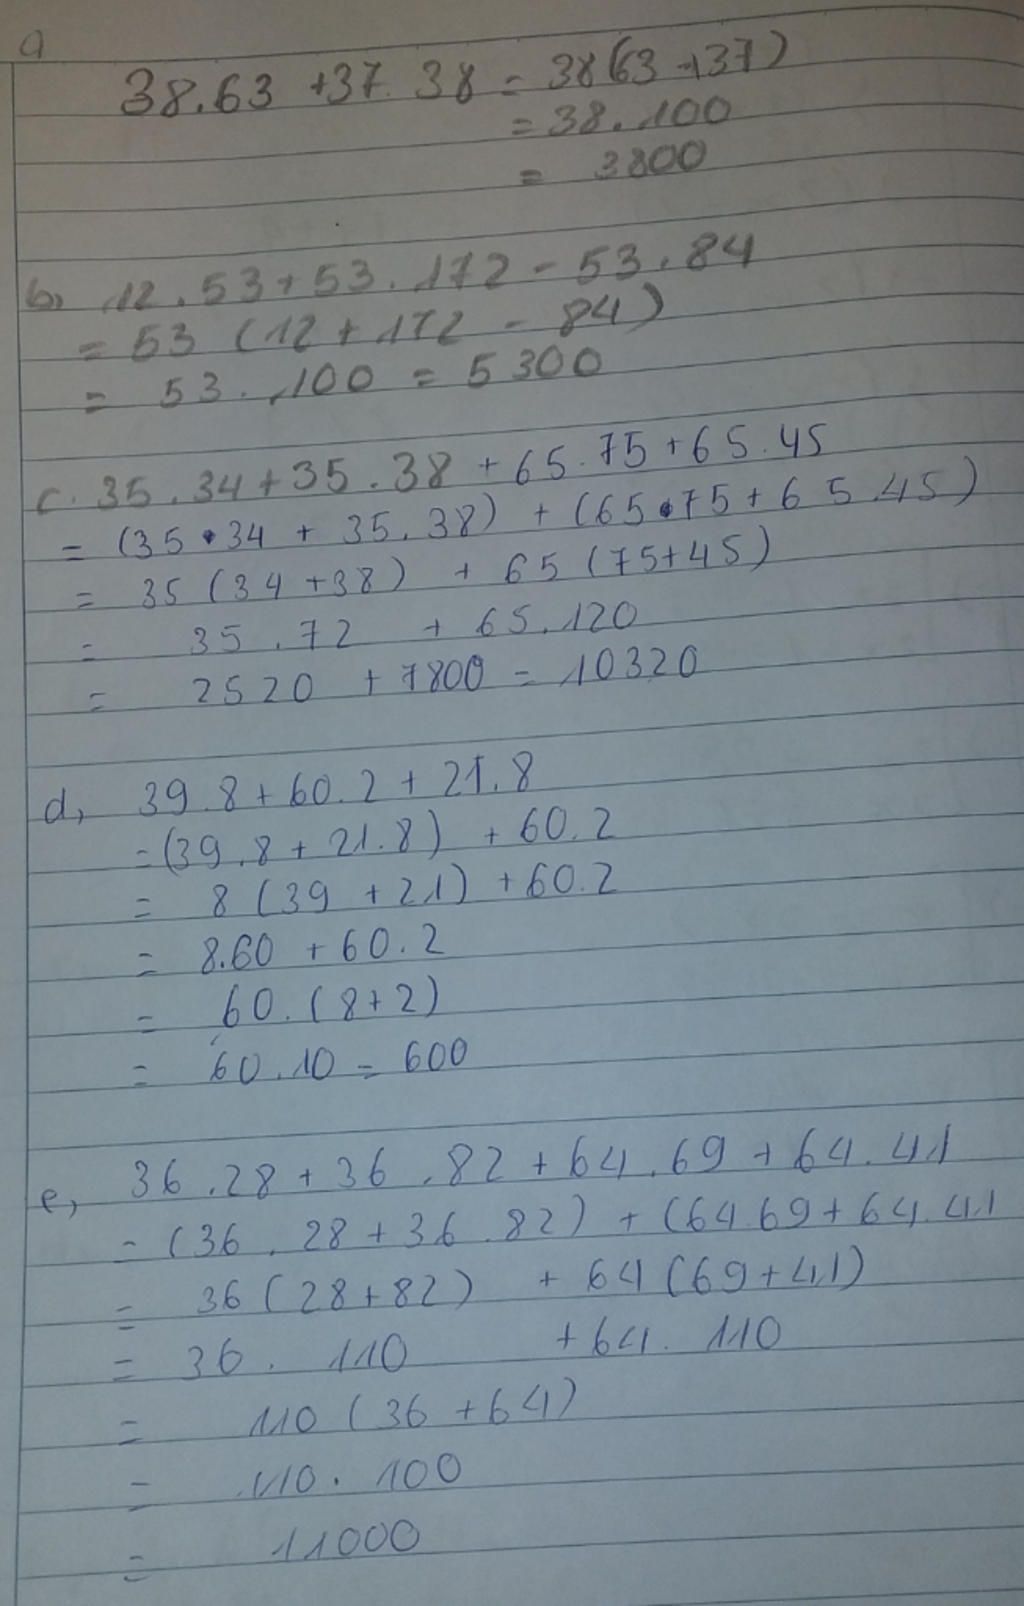 a
38.63 +37.38 = 38(63 +37)
= 38.100
= 3800
b, 12.53+53.172 - 53.84
= 53 (12 + 172 - 84)
= 53.100 = 5300
c. 35.34+35.38 + 65.75+65.45
= (35.34 + 35.38) + (65.75+65.45)
= 35 (34+38) + 65 (75+45)
= 35.72 + 65.120
= 2520 + 7800 = 10320
d, 39.8+60.2+21.8
=(39.8+21.8) +60.2
= 8 (39 +21) +60.2
= 8.60 +60.2
= 60.(8+2)
= 60.10 = 600
e, 36.28+36.82+64.69+64.41
= (36.28+36.82) + (64.69+64.41
= 36(28+82) + 64(69+41)
= 36. 110 +64. 110
= 110 (36 +64)
= 110. 100
= 11000